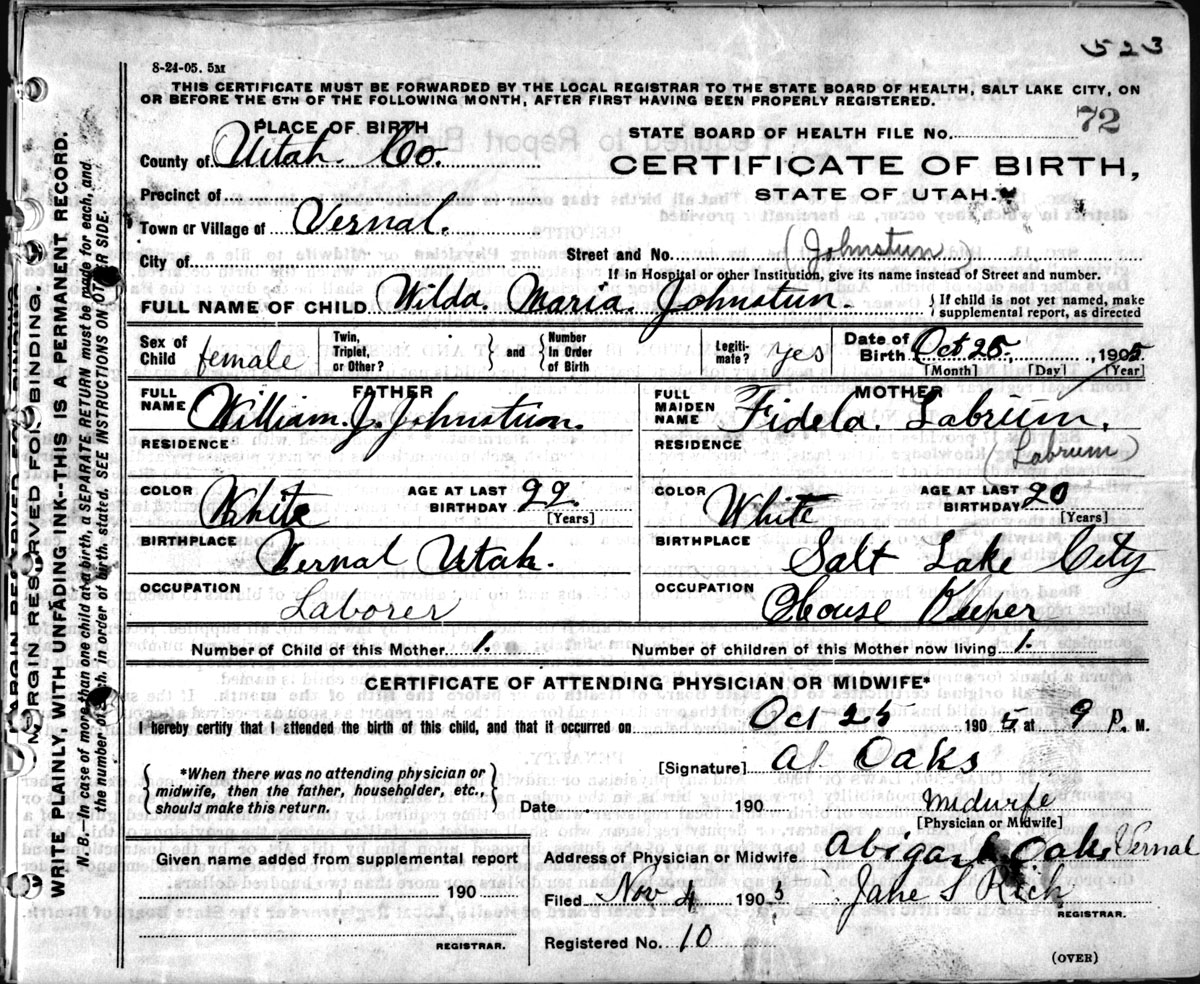 523
8-24-05. 5M
THIS CERTIFICATE MUST BE FORWARDED BY THE LOCAL REGISTRAR TO THE STATE BOARD OF HEALTH, SALT LAKE CITY, ON
OR BEFORE THE 5TH OF THE FOLLOWING MONTH, AFTER FIRST HAVING BEEN PROPERLY REGISTERED.
PLACE OF BIRTH
County of Uitah. Co.
Precinct of
Town or Village of Vernal.
City of
STATE BOARD OF HEALTH FILE NO. 72
CERTIFICATE OF BIRTH,
STATE OF UTAH.
Street and No. (Johnstun)
If in Hospital or other Institution, give its name instead of Street and number.
FULL NAME OF CHILD Wilda. Maria. Johnstun. } If child is not yet named, make supplemental report, as directed
Sex of Child female Twin, Triplet, or Other? } and { Number in Order of Birth Legiti-mate? yes Date of Birth Oct 25, 1905
[Month] [Day] [Year]
FATHER
FULL NAME William. J. Johnstun.
RESIDENCE
COLOR White AGE AT LAST BIRTHDAY 22 [Years]
BIRTHPLACE Vernal Utah.
OCCUPATION Laborer
MOTHER
FULL MAIDEN NAME Fidela. Labrum.
RESIDENCE (Labrum)
COLOR White AGE AT LAST BIRTHDAY 20 [Years]
BIRTHPLACE Salt Lake City
OCCUPATION House Keeper
Number of Child of this Mother 1. Number of children of this Mother now living 1.
CERTIFICATE OF ATTENDING PHYSICIAN OR MIDWIFE*
I hereby certify that I attended the birth of this child, and that it occurred on Oct 25 1905 at 9 P. M.
*When there was no attending physician or
midwife, then the father, householder, etc.,
should make this return.
[Signature] A Oaks
Date 190 midwife
[Physician or Midwife]
Given name added from supplemental report
190
REGISTRAR.
Address of Physician or Midwife Abigail Oaks Vernal
Filed Nov 4 1905 Jane S Rich
REGISTRAR.
Registered No. 10
(OVER)
MARGIN RESERVED FOR BINDING.
WRITE PLAINLY, WITH UNFADING INK--THIS IS A PERMANENT RECORD.
N. B.--In case of more than one child at a birth, a SEPARATE RETURN must be made for each, and
the number of each, in order of birth, stated. SEE INSTRUCTIONS ON OTHER SIDE.